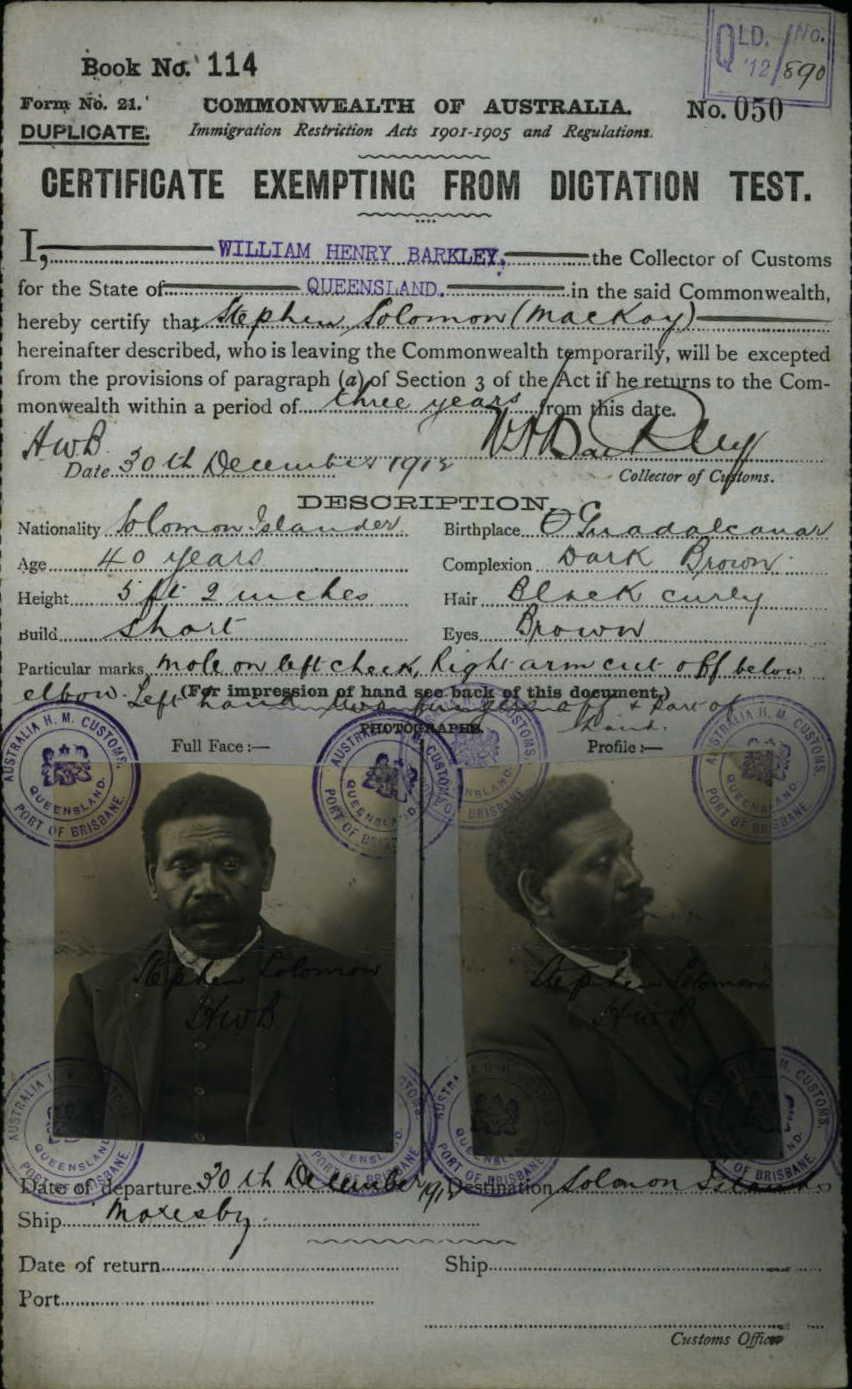 QLD. No.
'12/890
Book No. 114
Form No. 21. COMMONWEALTH OF AUSTRALIA. No. 050
DUPLICATE. Immigration Restriction Acts 1901-1905 and Regulations.
CERTIFICATE EXEMPTING FROM DICTATION TEST.
I, WILLIAM HENRY BARKLEY, the Collector of Customs
for the State of QUEENSLAND. in the said Commonwealth,
hereby certify that Stephen Solomon (Mackay)
hereinafter described, who is leaving the Commonwealth temporarily, will be excepted
from the provisions of paragraph (a) of Section 3 of the Act if he returns to the Com-
monwealth within a period of three years from this date.
HWB WHBarkley
Date 30th December 1912 Collector of Customs.
DESCRIPTION.
Nationality Solomon Islander Birthplace Guadalcanar
Age 40 years Complexion Dark Brown
Height 5 ft 2 inches Hair Black curly
Build Short Eyes Brown
Particular marks Mole on left cheek, Right arm cut off below
elbow. Left hand two fingers off & part of
hand.
(For impression of hand see back of this document.)
PHOTOGRAPHS.
Full Face :— Profile :—
AUSTRALIA H. M. CUSTOMS.
QUEENSLAND.
PORT OF BRISBANE
AUSTRALIA H. M. CUSTOMS.
QUEENSLAND.
PORT OF BRISBANE
Stephen Solomon Stephen Solomon
HWB HWB
Date of departure 30th December 1912 Destination Solomon Islands
Ship Moresby
Date of return Ship
Port
Customs Officer